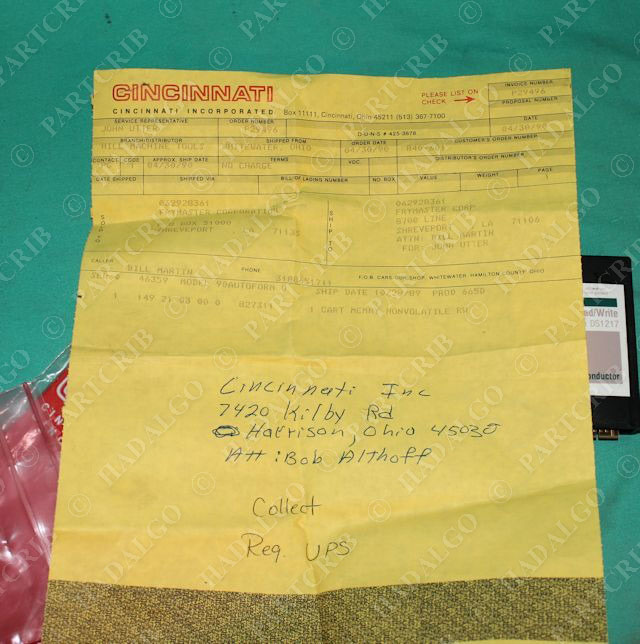 CINCINNATI
CINCINNATI INCORPORATED Box 11111, Cincinnati, Ohio 45211 (513) 367-7100
PLEASE LIST ON
CHECK
INVOICE NUMBER
P29496
PROPOSAL NUMBER
SERVICE REPRESENTATIVE ORDER NUMBER D-U-N-S # 425-3678 DATE
JOHN UTTER P29496 04/30/90
BRANCH/DISTRIBUTOR SHIPPED FROM ORDER DATE CUSTOMER'S ORDER NUMBER
HILL MACHINE TOOLS WHITEWATER, OHIO 04/30/90
CONTACT CODE APPROX. SHIP DATE TERMS VDC DISTRIBUTOR'S ORDER NUMBER
04/30/90 NO CHARGE
DATE SHIPPED SHIPPED VIA BILL OF LADING NUMBER NO. BOX VALUE WEIGHT PAGE
1
062928361
FRYMASTER CORPORATION
BOX 51000
SHREVEPORT LA 71135
SHIP TO
062928361
FRYMASTER CORP
8700 LINE
SHREVEPORT LA 71106
ATTN: BILL MARTIN
FOR: JOHN UTTER
CALLER BILL MARTIN PHONE
F.O.B. CARS OUR SHOP, WHITEWATER, HAMILTON COUNTY, OHIO
46359 MODEL 90AUTOFORM SHIP DATE 10/20/89 PROD 665D
1 827311 1 CART MEMRY NONVOLATILE RW
Cincinnati Inc
7420 Kilby Rd
Harrison, Ohio 45030
Att: Bob Althoff
Collect
Reg. UPS
ad/Write
DS1217
onductor
© PARTCRIB
© HADALGO